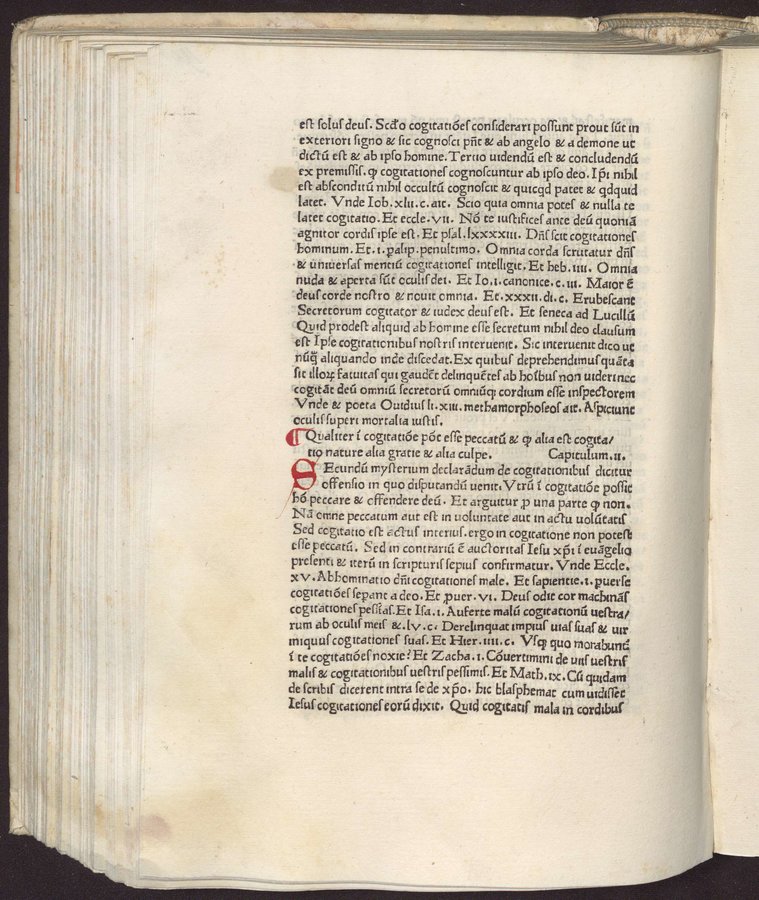 est solus deus. Scďo cogitatiões considerari possunt prout sũt in
exteriori signo & sic cognosci pñt & ab angelo & a demone ut
dictũ est & ab ipso homine. Tertio uidendũ est & concludendũ
ex premissis. ꝙ cogitationes cognoscuntur ab ipso deo. Ip̃i nihil
est absconditũ nihil occultũ cognoscit & quicqd patet & qdquid
latet. Vnde Iob. xlii. c. ait. Scio quia omnia potes & nulla te
latet cogitatio. Et eccle. vii. Nõ te iustifices ante deũ quoniã
agnitor cordis ipse est. Et psal. lxxxxiii. Dñs scit cogitationes
hominum. Et. i. ꝑalip. penultimo. Omnia corda scrutatur dñs
& uniuersas mentiũ cogitationes intelligit. Et heb. iiii. Omnia
nuda & aperta sũt oculis dei. Et Io. i. canonice. c. iii. Maior ẽ
deus corde nostro & nouit omnia. Et. xxxii. di. c. Erubescant
Secretorum cogitator & iudex deus est. Et seneca ad Lucillũ
Quid prodest aliquid ab homine esse secretum nihil deo clausum
est Ipse cogitationibus nostris interuenit. Sic interuenit dico ut
nũq̃ aliquando inde discedat. Ex quibus deprehendimus quãta
sit illoꝝ fatuitas qui gaudẽt delinquẽtes ab hoĩbus non uideri nec
cogitãt deũ omniũ secretorũ omniũqꝫ cordium esse inspectorem
Vnde & poeta Ouidius li. xiii. methamorphoseos ait. Aspiciunt
oculis superi mortalia iustis.
¶ Qualiter ĩ cogitatiõe põt esse peccatũ & ꝙ alia est cogita/
tio nature alia gratie & alia culpe. Capitulum. ii.
SEcundũ mysterium declarãdum de cogitationibus dicitur
offensio in quo disputandũ uenit. Vtrũ ĩ cogitatiõe possit
hõ peccare & offendere deũ. Et arguitur ꝓ una parte ꝙ non.
Nã omne peccatum aut est in uoluntate aut in actu uolũtatis
Sed cogitatio est actus interius. ergo in cogitatione non potest
esse peccatũ. Sed in contrariũ ẽ auctoritas Iesu xp̃i ĩ euãgelio
presenti & iterũ in scripturis sepius confirmatur. Vnde Eccle.
xv. Abhominatio dñi cogitationes male. Et sapientie. i. ꝑuerse
cogitatiões seꝑant a deo. Et ꝓuer. vi. Deus odit cor machinãs
cogitationes pessĩas. Et Isa. i. Auferte malũ cogitationũ uestra/
rum ab oculis meis &. lv. c. Derelinquat impius uias suas & uir
iniquus cogitationes suas. Et Hier. iiii. c. Vsqꝫ quo morabunt̃
ĩ te cogitatiões noxie? Et Zacha. i. Cõuertimini de uiis uestris
malis & cogitationibus uestris pessimis. Et Math. ix. Cũ quidam
de scribis dicerent intra se de xp̃o. hic blasphemat cum uidisset
Iesus cogitationes eorũ dixit. Quid cogitatis mala in cordibus